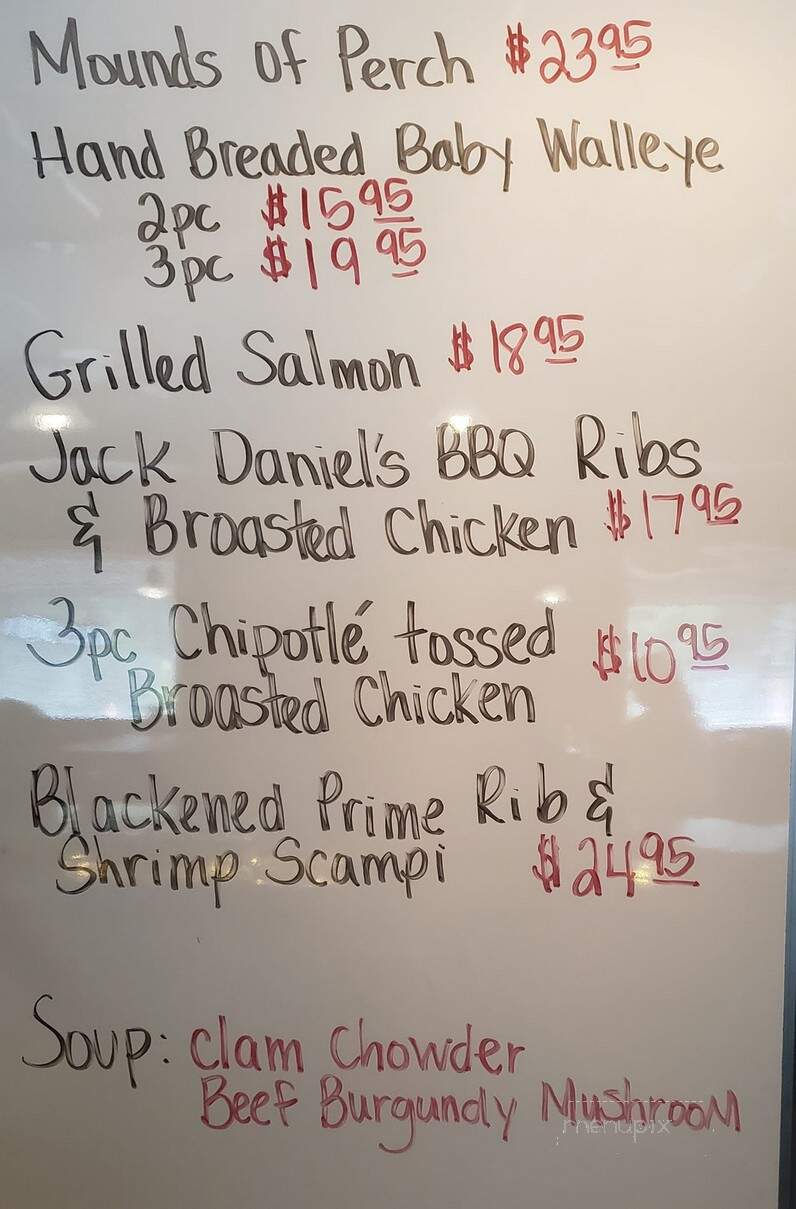 Mounds of Perch $23 95
Hand Breaded Baby Walleye
2pc $15 95
3pc $19 95
Grilled Salmon $18 95
Jack Daniel's BBQ Ribs
& Broasted Chicken $17 95
3pc Chipotlé tossed $10 95
Broasted Chicken
Blackened Prime Rib &
Shrimp Scampi $24 95
Soup: Clam Chowder
Beef Burgundy Mushroom
menupix